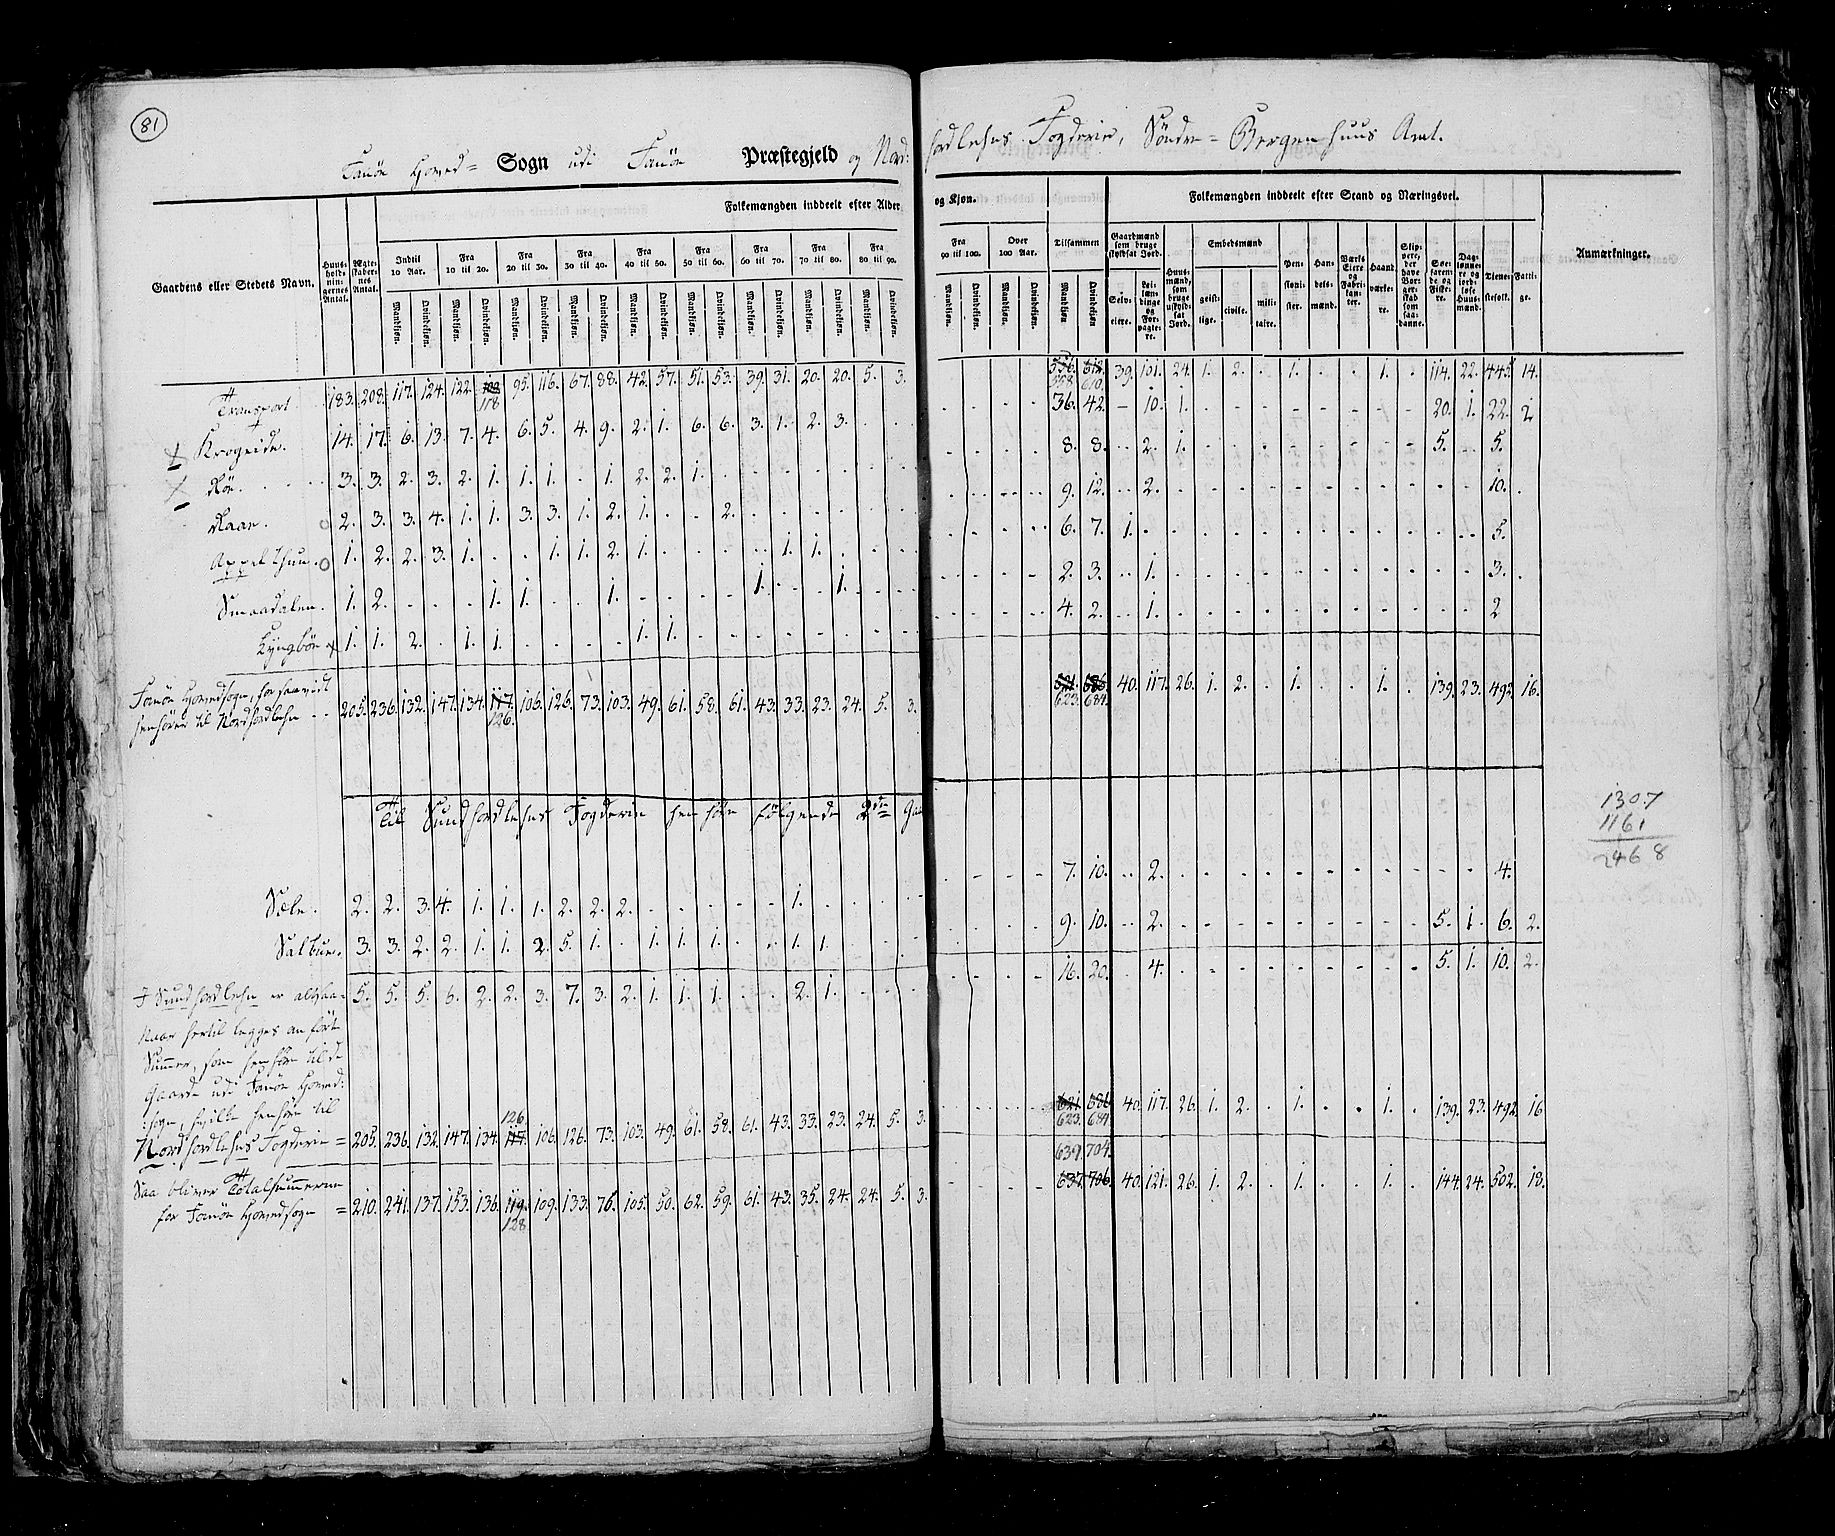 81
Fanöe Hoved= Sogn udi Fanöe Præstegjeld og Nord: hordlehns Fogderie, Söndre= Bergenhuus Amt.
Gaardens eller Stedets Navn. Huus-holdningernes Antal. Ægteskabernes Antal. Folkemængden inddeelt efter Alder og Kjøn. Tilsammen Folkemængden inddeelt efter Stand og Næringsvei. Anmærkninger.
Indtil 10 Aar. Fra 10 til 20. Fra 20 til 30. Fra 30 til 40. Fra 40 til 50. Fra 50 til 60. Fra 60 til 70. Fra 70 til 80. Fra 80 til 90. Fra 90 til 100. Over 100 Aar.
Mandkjøn. Qvindekjøn.
Gaardmænd som bruge skyldsat Jord. Selveiere. Leilændinge og Forpagtere. Huusmænd, som bruge uskyldsat Jord. Embedsmænd geistlige. civile. militaire. Pensionister. Handelsmænd. Værks Eiere og Fabrikanter. Haandværkere. Slippere, der have Borgerskab som saadanne. Søefarende og Fiskere. Daglønnere og jordløse Huusmænd. Tienestefolk. Fattige.
Transport 183. 208. 117. 124. 122. 109 118 95. 116. 67. 88. 42. 57. 51. 53. 39. 31. 20. 20. 5. 3. 556. 612. 558. 610. 39. 101. 24. 1. 2. 1. 1. 114. 22. 445. 14.
Krogeide. 14. 17. 6. 13. 7. 4. 6. 5. 4. 9. 2. 1. 6. 6. 3. 1. 2. 3. 36. 42. 10. 1. 20. 1. 22. 2
Röe. 3. 3. 2. 3. 2. 1. 1. 1. 1. 2. 2. 1. 8. 8. 2. 1. 5. 5.
Raae. 2. 3. 3. 4. 1. 1. 3. 3. 1. 2. 1. 2. 9. 12. 2. 10.
Appelthun. 1. 2. 2. 3. 1. 1. 1. 2. 1. 1. 1. 6. 7. 1. 5.
Smaadalen. 1. 2. 1. 1. 1. 1. 1. 2. 3. 1. 3.
Lyngböe 1. 1. 2. 1. 1. 1. 1. 4. 2. 1. 2
Fanöe Hovedsogn, for saavidt
henhörer til Nordhordlehn 205. 236. 132. 147. 134. 117. 126. 106. 126. 73. 103. 49. 61. 58. 61. 43. 33. 23. 24. 5. 3. 621. 686. 623. 684. 40. 117. 26. 1. 2. 1. 1. 139. 23. 492. 16.
1307
1161
2468
Til Sundhordlehns Fogderie henhöre fölgende 2de Gaa
Sæle. 2. 2. 3. 4. 1. 1. 1. 2. 2. 2. 1. 7. 10. 2. 4.
Salbue. 3. 3. 2. 2. 1. 1. 2. 5. 1. 1. 1. 1. 1. 1. 9. 10. 2. 5. 1. 6. 2.
I Sundhordlehn er altsaa 5. 5. 5. 6. 2. 2. 3. 7. 3. 2. 1. 1. 1. 2. 1. 16. 20. 4. 5. 1. 10. 2.
Naar hertil legges anfört
Summer, som henhöre til de
Gaarde udi Fanöe Hoved:
sogn, hvilke henhöre til
Nordhordlehns Fogderie = 205. 236. 132. 147. 134. 126. 117. 106. 126. 73. 103. 49. 61. 58. 61. 43. 33. 23. 24. 5. 3. 621. 686 623. 684. 40. 117. 26. 1. 2. 1. 1. 139. 23. 492. 16
Saa bliver Totalsummerne
for Fanöe Hovedsogn = 210. 241. 137. 153. 136. 119. 128 109. 133. 76. 105. 50. 62. 59. 61. 43. 35. 24. 24. 5. 3. 639. 704. 637. 706. 40. 121. 26. 1. 2. 1. 1. 144. 24. 502. 18.